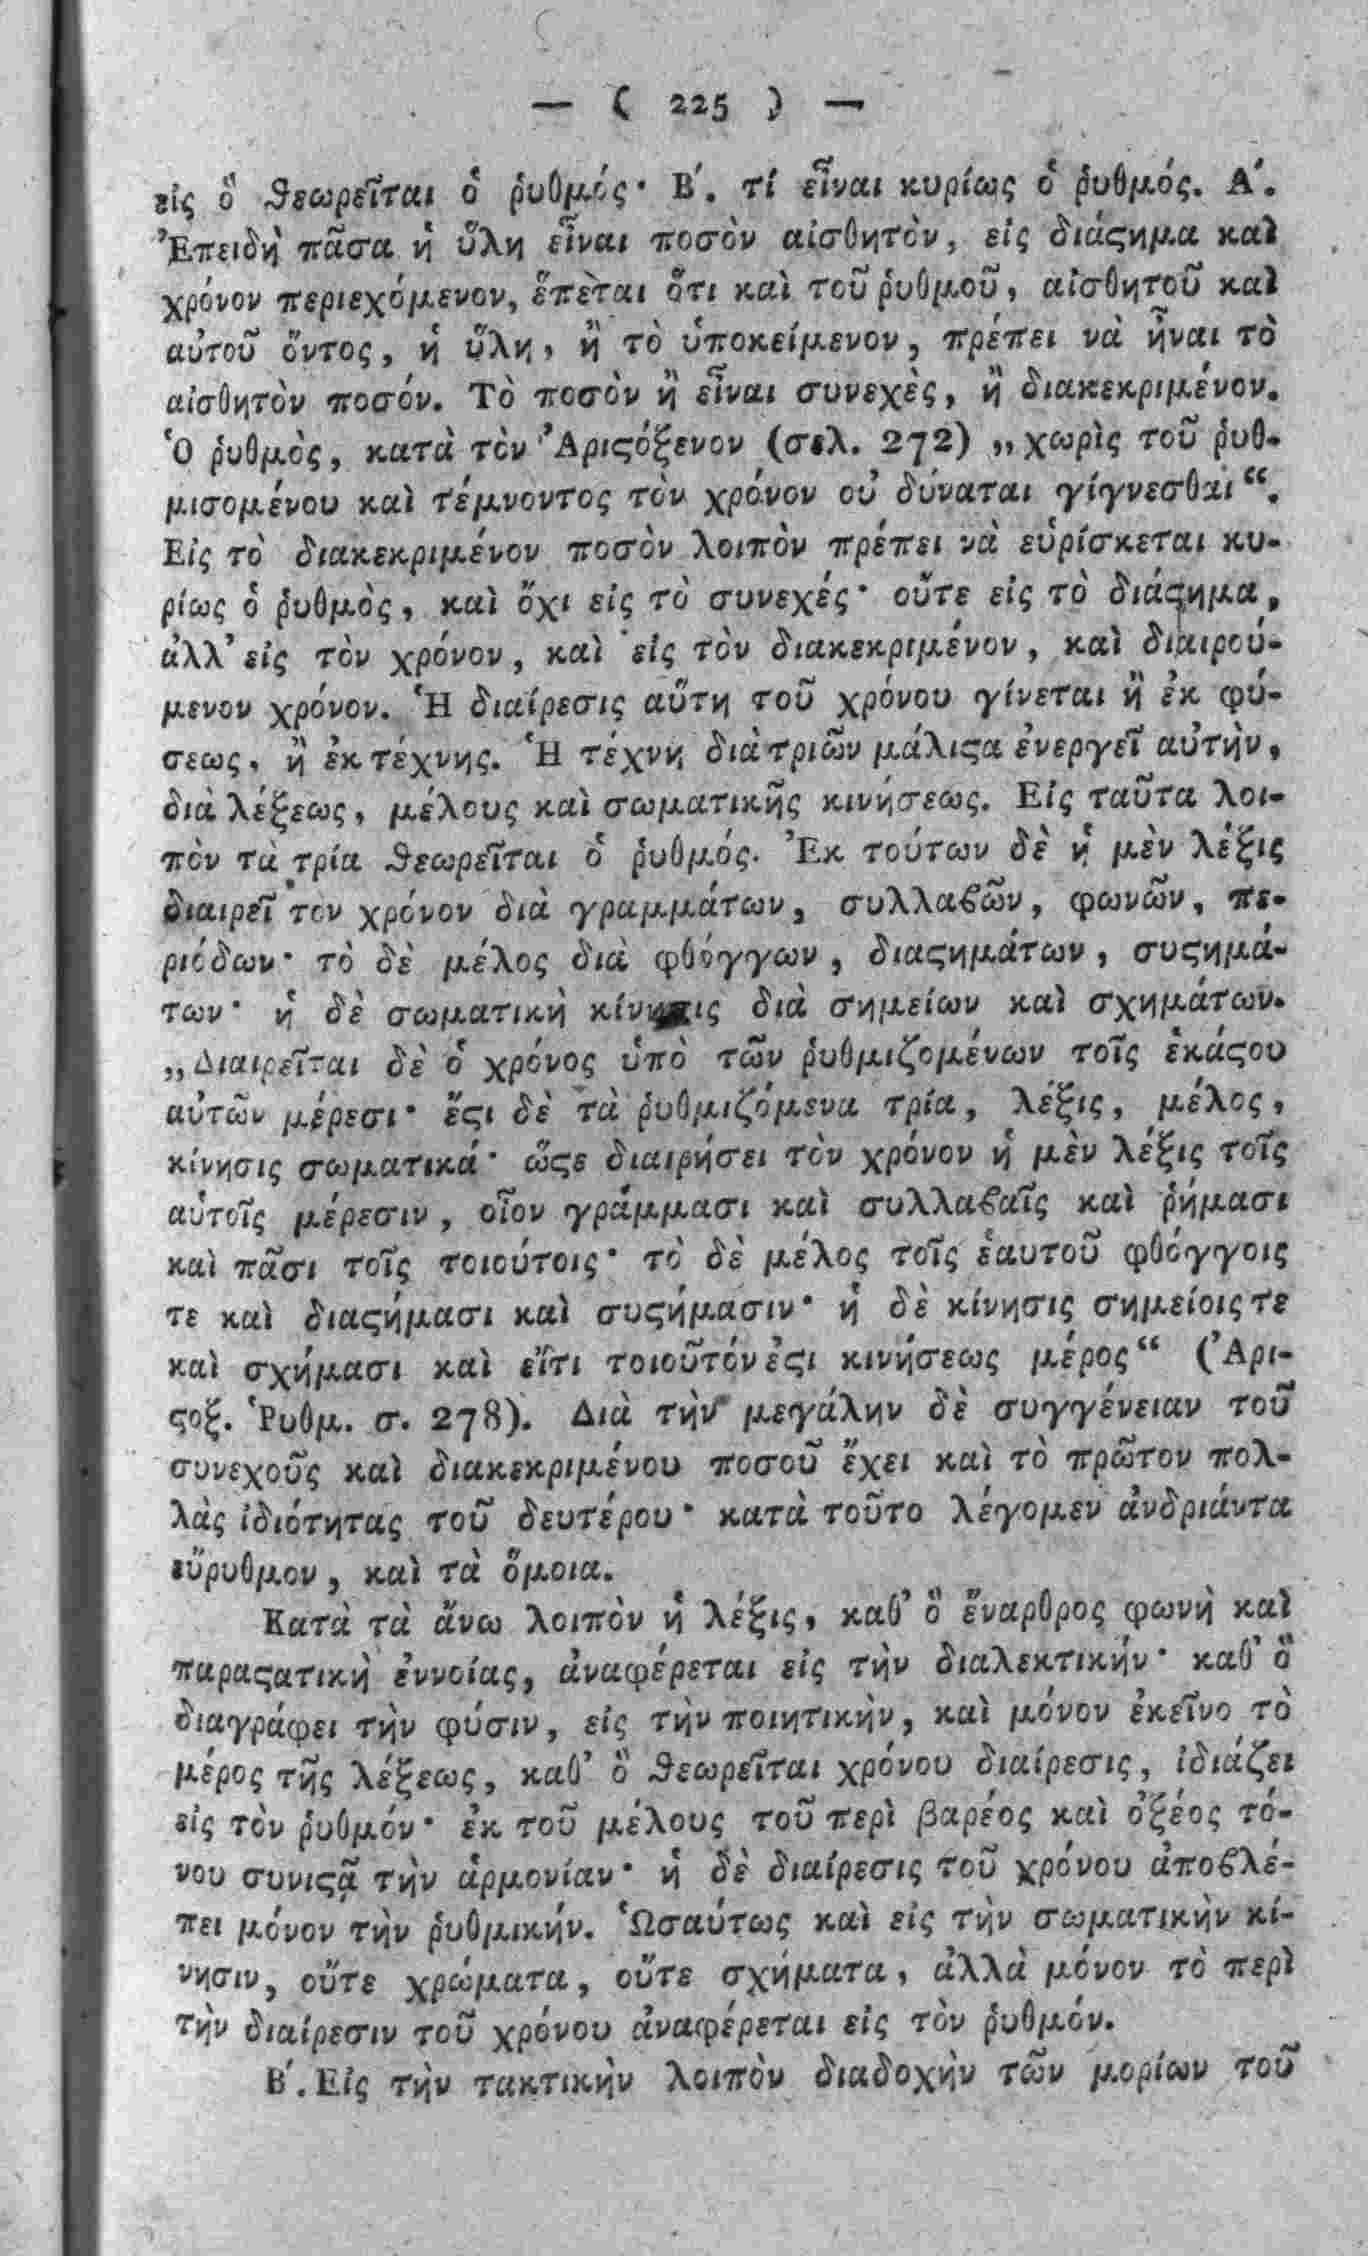 — ( 225 ) —
εἰς ὃ ϑεωρεῖται ὁ ῥυθμός· Β΄. τί εἶναι κυρίως ὁ ῥυθμός. Α΄.
Ἐπειδὴ πᾶσα ἡ ὕλη εἶναι ποσὸν αἰσθητὸν, εἰς διάϛημα καὶ
χρόνον περιεχόμενον, ἕπεται ὅτι καὶ τοῦ ῥυθμοῦ, αἰσθητοῦ καὶ
αὐτοῦ ὄντος, ἡ ὕλη, ἢ τὸ ὑποκείμενον, πρέπει νὰ ἦναι τὸ
αἰσθητὸν ποσόν. Τὸ ποσὸν ἢ εἶναι συνεχὲς, ἢ διακεκριμένον.
Ὁ ῥυθμὸς, κατὰ τὸν Ἀριϛόξενον (σελ. 272) „χωρὶς τοῦ ῥυθ-
μισομένου καὶ τέμνοντος τὸν χρόνον οὐ δύναται γίγνεσθαι“.
Εἰς τὸ διακεκριμένον ποσὸν λοιπὸν πρέπει νὰ εὑρίσκεται κυ-
ρίως ὁ ῥυθμὸς, καὶ ὄχι εἰς τὸ συνεχές· οὔτε εἰς τὸ διάϛημα,
ἀλλ᾽ εἰς τὸν χρόνον, καὶ εἰς τὸν διακεκριμένον, καὶ διαιρού-
μενον χρόνον. Ἡ διαίρεσις αὕτη τοῦ χρόνου γίνεται ἢ ἐκ φύ-
σεως, ἢ ἐκ τέχνης. Ἡ τέχνη διὰ τριῶν μάλιϛα ἐνεργεῖ αὐτὴν,
διὰ λέξεως, μέλους καὶ σωματικῆς κινήσεως. Εἰς ταῦτα λοι-
πὸν τὰ τρία ϑεωρεῖται ὁ ῥυθμός. Ἐκ τούτων δὲ ἡ μὲν λέξις
διαιρεῖ τὸν χρόνον διὰ γραμμάτων, συλλαϐῶν, φωνῶν, πε-
ριόδων· τὸ δὲ μέλος διὰ φθόγγων, διαϛημάτων, συϛημά-
των· ἡ δὲ σωματικὴ κίνησις διὰ σημείων καὶ σχημάτων.
„Διαιρεῖται δὲ ὁ χρόνος ὑπὸ τῶν ῥυθμιζομένων τοῖς ἑκάϛου
αὐτῶν μέρεσι· ἔϛι δὲ τὰ ῥυθμιζόμενα τρία, λέξις, μέλος,
κίνησις σωματικά· ὥϛε διαιρήσει τὸν χρόνον ἡ μὲν λέξις τοῖς
αὑτοῖς μέρεσιν, οἷον γράμμασι καὶ συλλαϐαῖς καὶ ῥήμασι
καὶ πᾶσι τοῖς τοιούτοις· τὸ δὲ μέλος τοῖς ἑαυτοῦ φθόγγοις
τε καὶ διαϛήμασι καὶ συϛήμασιν· ἡ δὲ κίνησις σημείοις τε
καὶ σχήμασι καὶ εἴτι τοιοῦτόν ἐϛι κινήσεως μέρος“ (Ἀρι-
ϛοξ. Ῥυθμ. σ. 278). Διὰ τὴν μεγάλην δὲ συγγένειαν τοῦ
συνεχοῦς καὶ διακεκριμένου ποσοῦ ἔχει καὶ τὸ πρῶτον πολ-
λὰς ἰδιότητας τοῦ δευτέρου· κατὰ τοῦτο λέγομεν ἀνδριάντα
εὔρυθμον, καὶ τὰ ὅμοια.
Κατὰ τὰ ἄνω λοιπὸν ἡ λέξις, καθ᾽ ὃ ἔναρθρος φωνὴ καὶ
παραϛατικὴ ἐννοίας, ἀναφέρεται εἰς τὴν διαλεκτικήν· καθ᾽ ὃ
διαγράφει τὴν φύσιν, εἰς τὴν ποιητικὴν, καὶ μόνον ἐκεῖνο τὸ
μέρος τῆς λέξεως, καθ᾽ ὃ ϑεωρεῖται χρόνου διαίρεσις, ἰδιάζει
εἰς τὸν ῥυθμόν· ἐκ τοῦ μέλους τοῦ περὶ βαρέος καὶ ὀξέος τό-
νου συνιϛᾷ τὴν ἁρμονίαν· ἡ δὲ διαίρεσις τοῦ χρόνου ἀποϐλέ-
πει μόνον τὴν ῥυθμικήν. Ὡσαύτως καὶ εἰς τὴν σωματικὴν κί-
νησιν, οὔτε χρώματα, οὔτε σχήματα, ἀλλὰ μόνον τὸ περὶ
τὴν διαίρεσιν τοῦ χρόνου ἀναφέρεται εἰς τὸν ῥυθμόν.
Β΄. Εἰς τὴν τακτικὴν λοιπὸν διαδοχὴν τῶν μορίων τοῦ